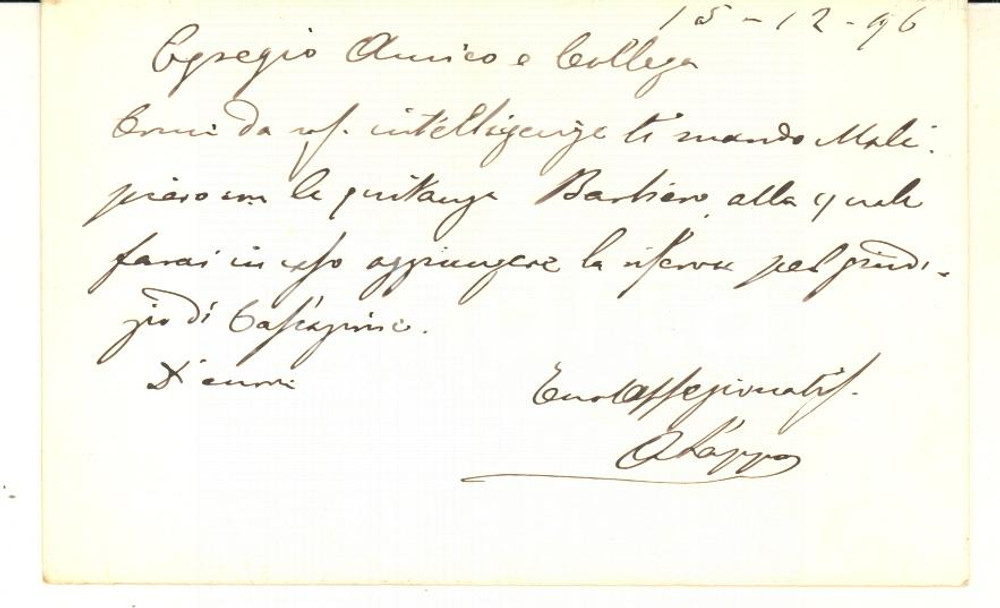 15-12-96
Egregio Amico e Collega
Come da ns. intelligenze ti mando Mali-
piero con la quitanza Barbiero, alla quale
farai in caso aggiungere la riserva pel giudi-
zio di Cassazione.
D'cuore
Tuo affezionatis.